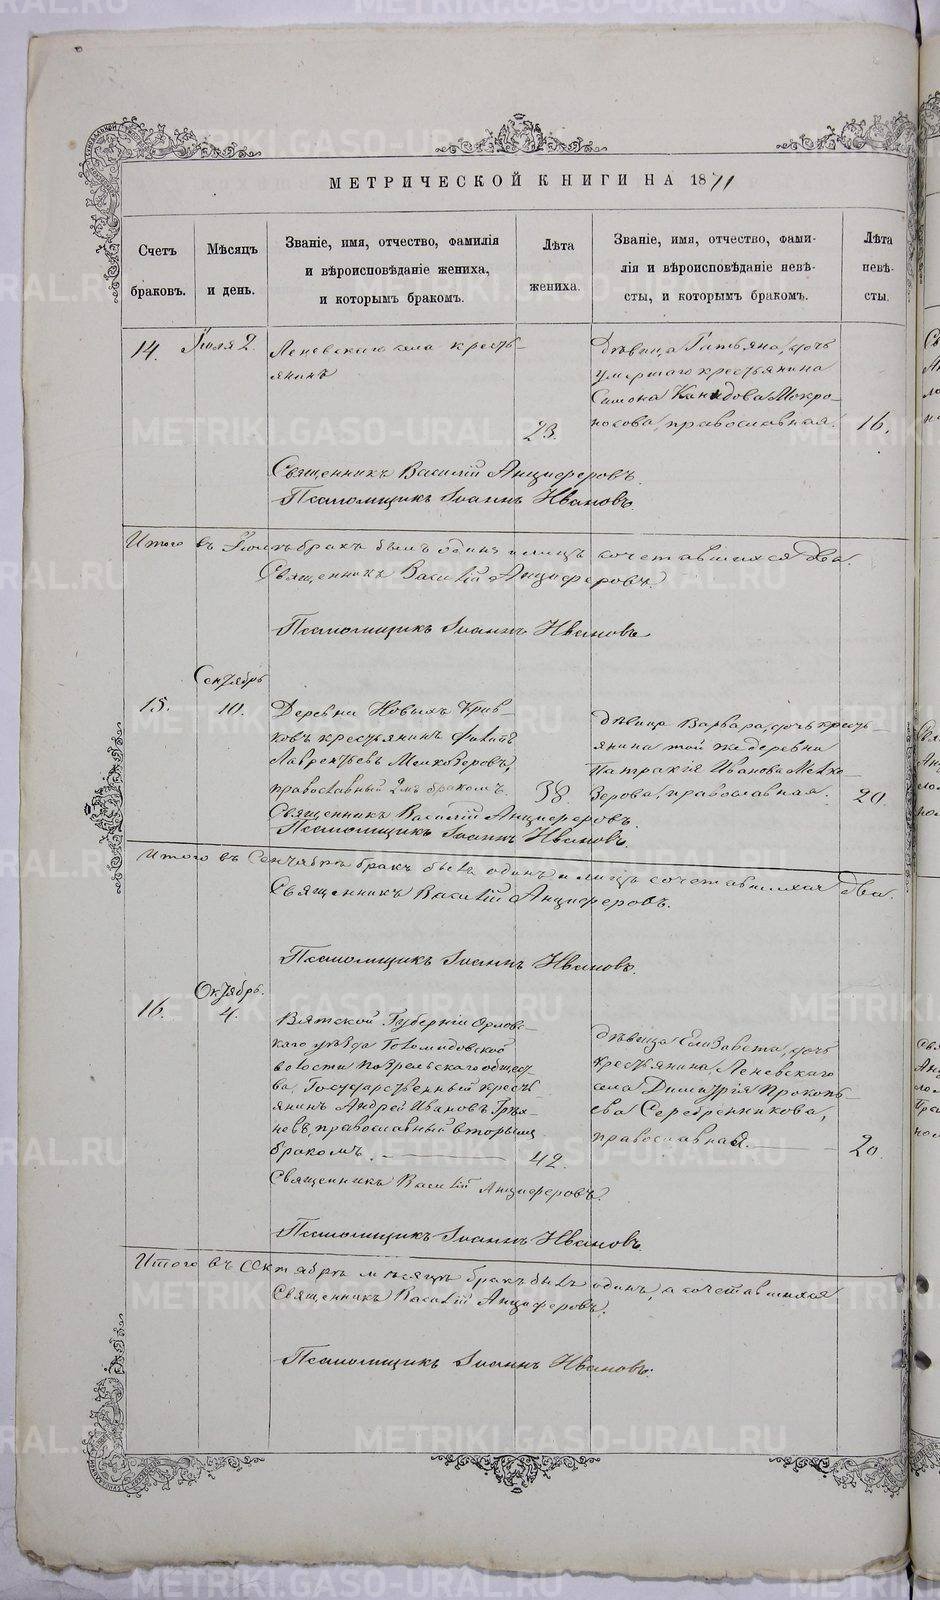 МЕТРИЧЕСКОЙ КНИГИ НА 1871
Счетъ браковъ.
Мѣсяцъ и день.
Званіе, имя, отчество, фамилія
и вѣроисповѣданіе жениха,
и которымъ бракомъ.
Лѣта жениха.
Званіе, имя, отчество, фами-
лія и вѣроисповѣданіе невѣ-
сты, и которымъ бракомъ.
Лѣта невѣ-
сты.
14.
Іюля 2.
Леневскаго села кресть-
янинъ
23.
Дѣвица Татьяна, дочь
умершаго крестьянина
Симона Мокро-
носова, православная.
16.
Священникъ Василій Анциферовъ.
Псаломщикъ Іоаннъ Ивановъ.
Итого въ Іюлѣ бракъ былъ одинъ и лицъ сочетавшихся два.
Священникъ Василій Анциферовъ.
Псаломщикъ Іоаннъ Ивановъ
Сентябрь
15.
10.
Деревни Новыхъ Крив-
ковъ крестьянинъ Филиппъ
Лаврентьевъ Мелкозеровъ,
православный 2мъ бракомъ.
38.
Дѣвица Варвара, дочь кресть-
янина той же деревни
Патракія Иванова Мелко-
зерова, православная.
20.
Священникъ Василій Анциферовъ.
Псаломщикъ Іоаннъ Ивановъ.
Итого въ Сентябрѣ бракъ былъ одинъ и лицъ сочетавшихся два.
Священникъ Василій Анциферовъ.
Псаломщикъ Іоаннъ Ивановъ.
Октябрь.
16.
4.
Вятской Губерніи Орлов-
скаго уѣзда
волости общест-
ва, Государственный кресть-
янинъ Андрей Ивановъ
православный вторымъ
бракомъ.
42.
Дѣвица Елизавета, дочь
крестьянина Леневскаго
села Димитрія Прокопь-
ева Серебренникова,
православная.
20.
Священникъ Василій Анциферовъ.
Псаломщикъ Іоаннъ Ивановъ.
Итого въ Октябрѣ мѣсяцѣ бракъ былъ одинъ, а сочетавшихся
Священникъ Василій Анциферовъ.
Псаломщикъ Іоаннъ Ивановъ.
METRIKI.GASO-URAL.RU